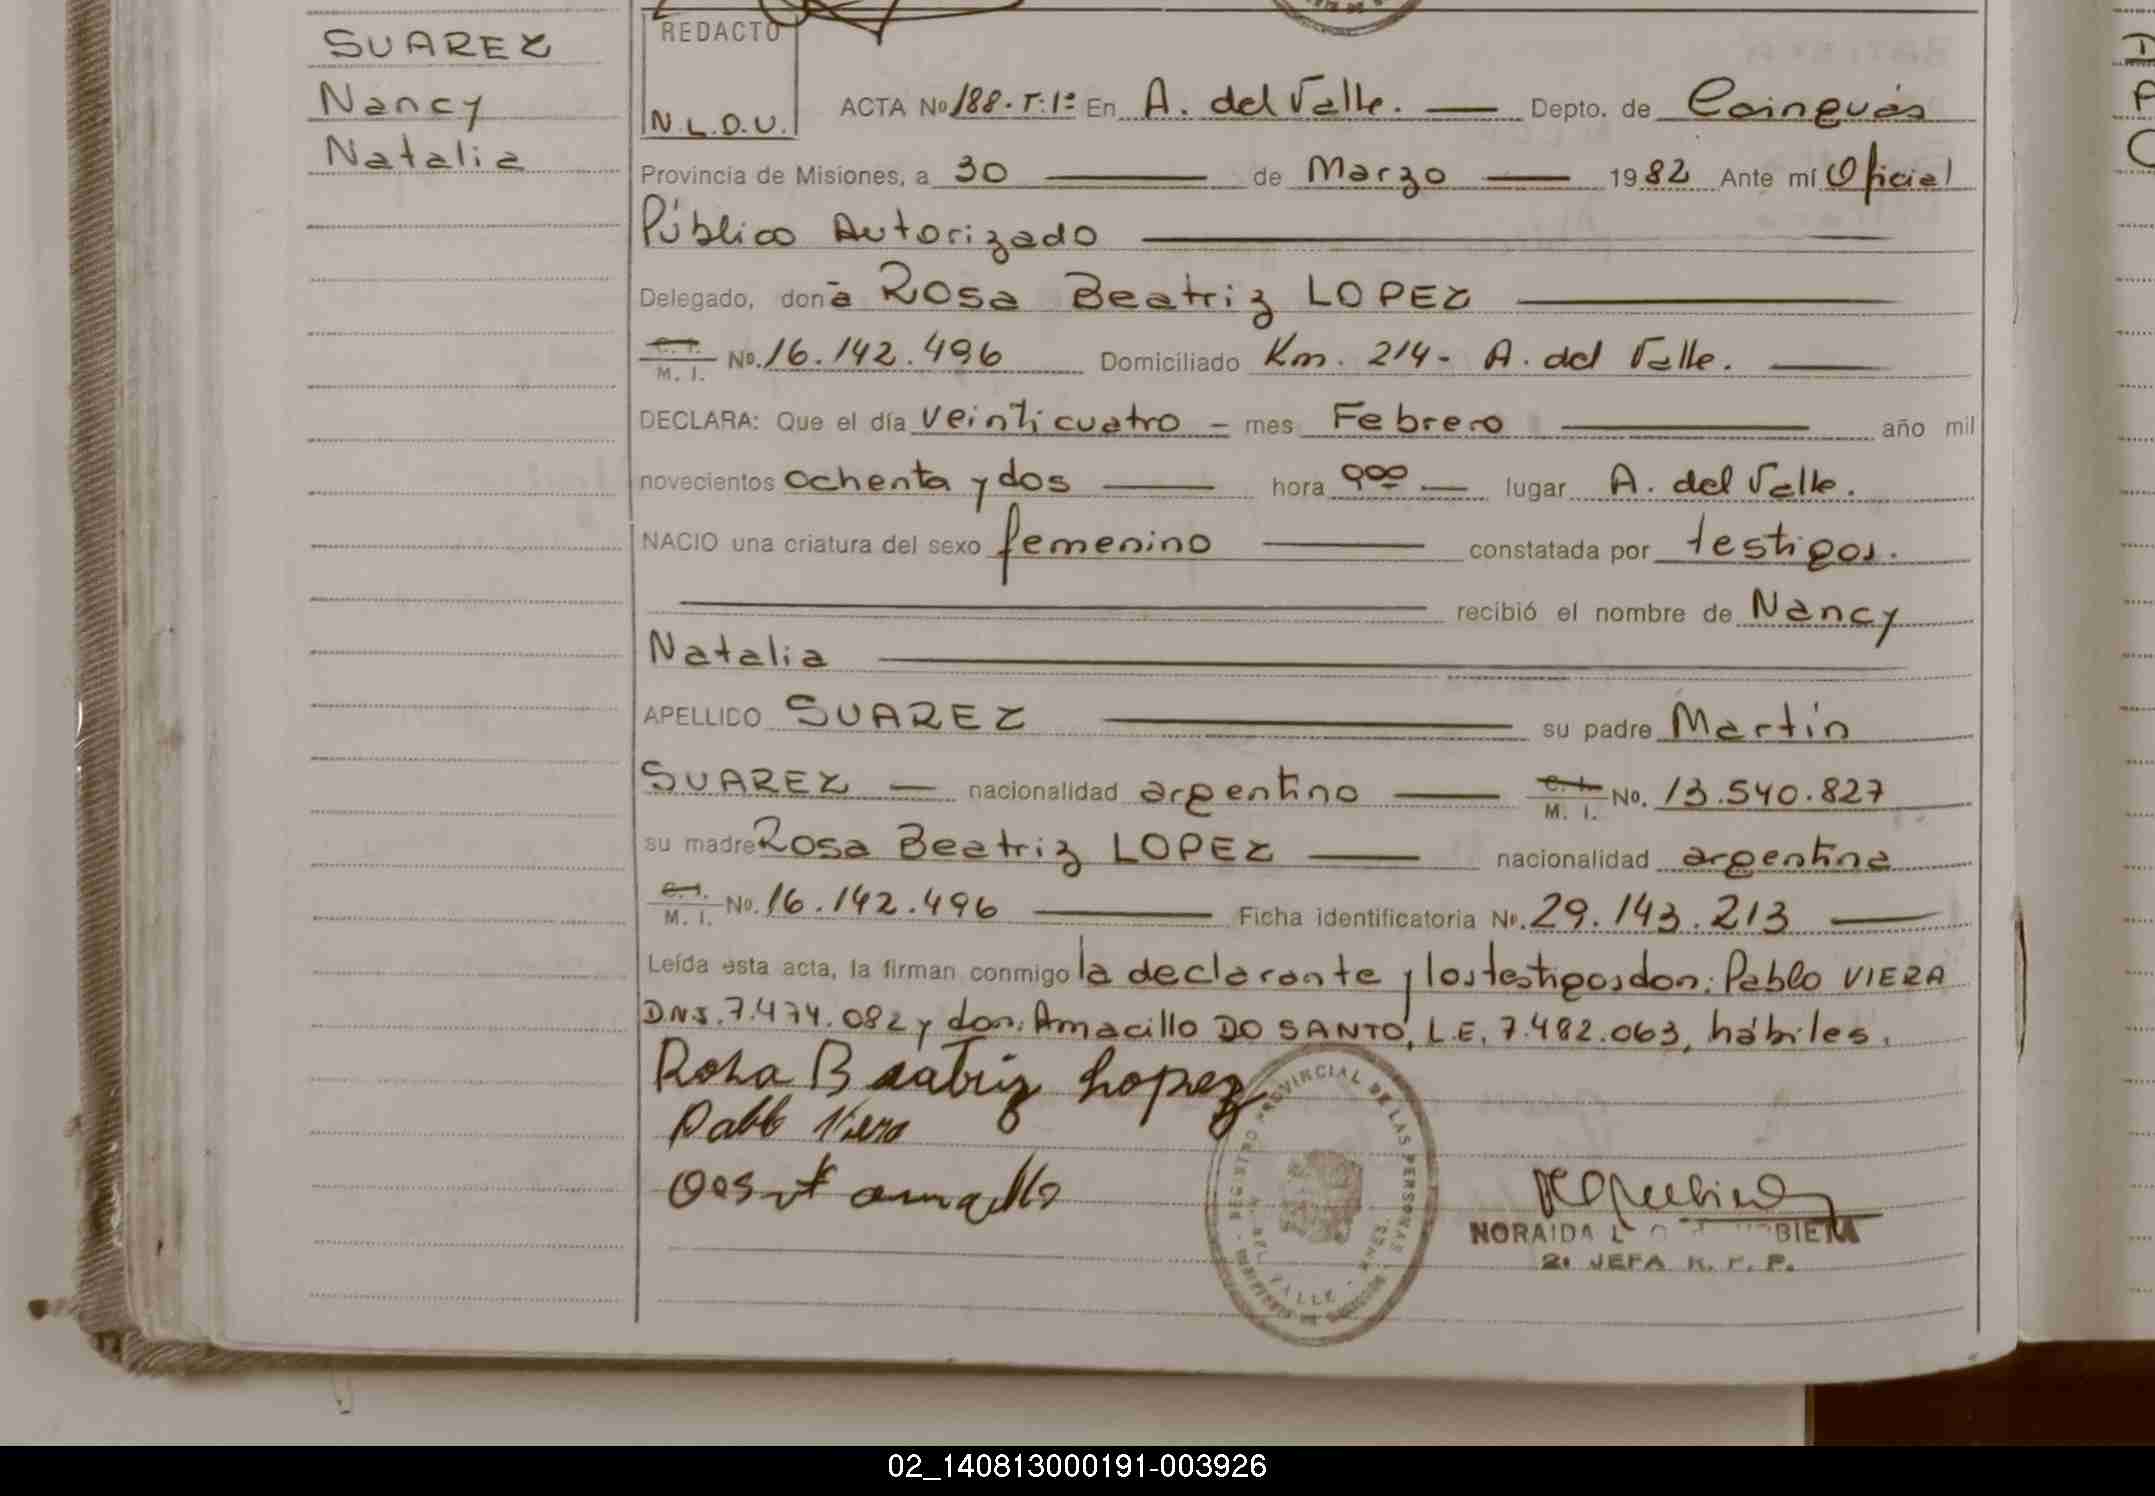 SUAREZ
Nancy
Natalia
REDACTO
N.L.D.U.
ACTA No 188.T:1º En A. del Valle. Depto. de Cainguás
Provincia de Misiones, a 30 de Marzo 1982 Ante mí Oficial
Público Autorizado
Delegado, doña Rosa Beatriz LOPEZ
C. I.
M. I. No. 16.142.496 Domiciliado Km. 214- A. del Valle.
DECLARA: Que el día veinticuatro - mes Febrero año mil
novecientos ochenta y dos hora 9 00 lugar A. del Valle.
NACIO una criatura del sexo femenino constatada por testigos.
recibió el nombre de Nancy
Natalia
APELLIDO SUAREZ su padre Martín
SUAREZ nacionalidad argentino C. I. M. I. No. 13.540.827
su madre Rosa Beatriz LOPEZ nacionalidad argentina
C. I. M. I. No. 16.142.496 Ficha identificatoria No. 29.143.213
Leída esta acta, la firman conmigo la declarante y los testigos don: Pablo VIERA
D.N.I. 7.474.082 y don: Amacillo DO SANTO, L.E. 7.482.063, hábiles.
Rosa Beatriz Lopez
Pablo Viera
REGISTRO PROVINCIAL DE LAS PERSONAS
DEL VALLE
NORAIDA L
2ª JEFA R. P. P.
02_140813000191-003926